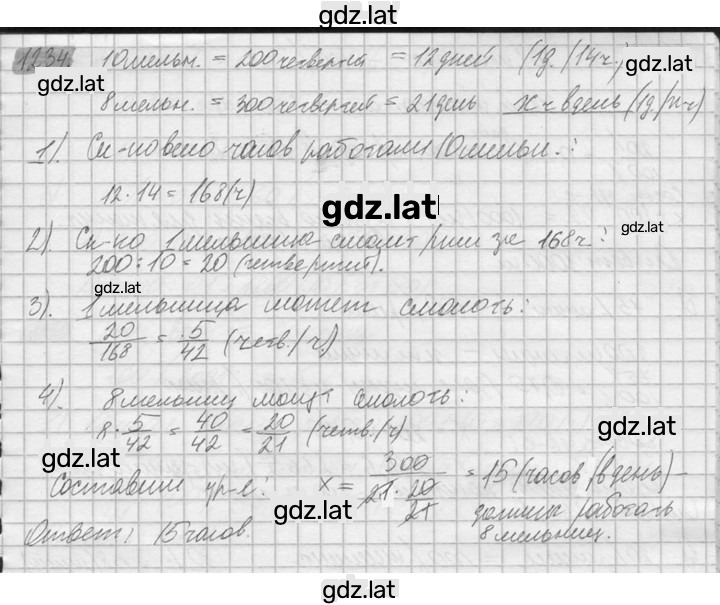 gdz.lat
1234. 10 мельн. = 200 четвертей = 12 дней (1д./14ч.)
gdz.lat
gdz.lat
8 мельн. = 300 четвертей = 21 день x ч в день (1д/xч)
gdz.lat
1). Ск-ко всего часов работали 10 мельн.:
12·14 = 168 (ч)
gdz.lat
2). Ск-ко 1 мельница смолет ржи за 168 ч:
gdz.lat
200:10 = 20 (четвертей).
gdz.lat
3). 1 мельница может смолоть:
20/168 = 5/42 (четв./ч.)
4). 8 мельниц могут смолоть:
8·5/42 = 40/42 = 20/21 (четв./ч)
gdz.lat
gdz.lat
Составим ур-е: x = 300/(21·20/21) = 15 (часов в день) –
gdz.lat
должны работать
8 мельниц.
Ответ: 15 часов.
gdz.lat